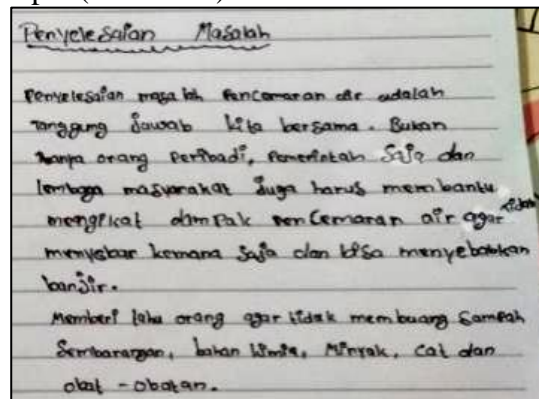 Penyelesaian Masalah
Penyelesaian masalah Pencemaran air adalah
Tanggung Jawab kita bersama. Bukan
hanya orang Peribadi, Pemerintah Saja dan
lembaga masyarakat Juga harus membantu
mengikat dampak Pencemaran air agar tidak
menyebar kemana Saja dan bisa menyebabkan
banjir.
Memberi tahu orang agar tidak membuang Sampah
Sembarangan, bahan kimia, Minyak, Cat dan
obat - obatan.